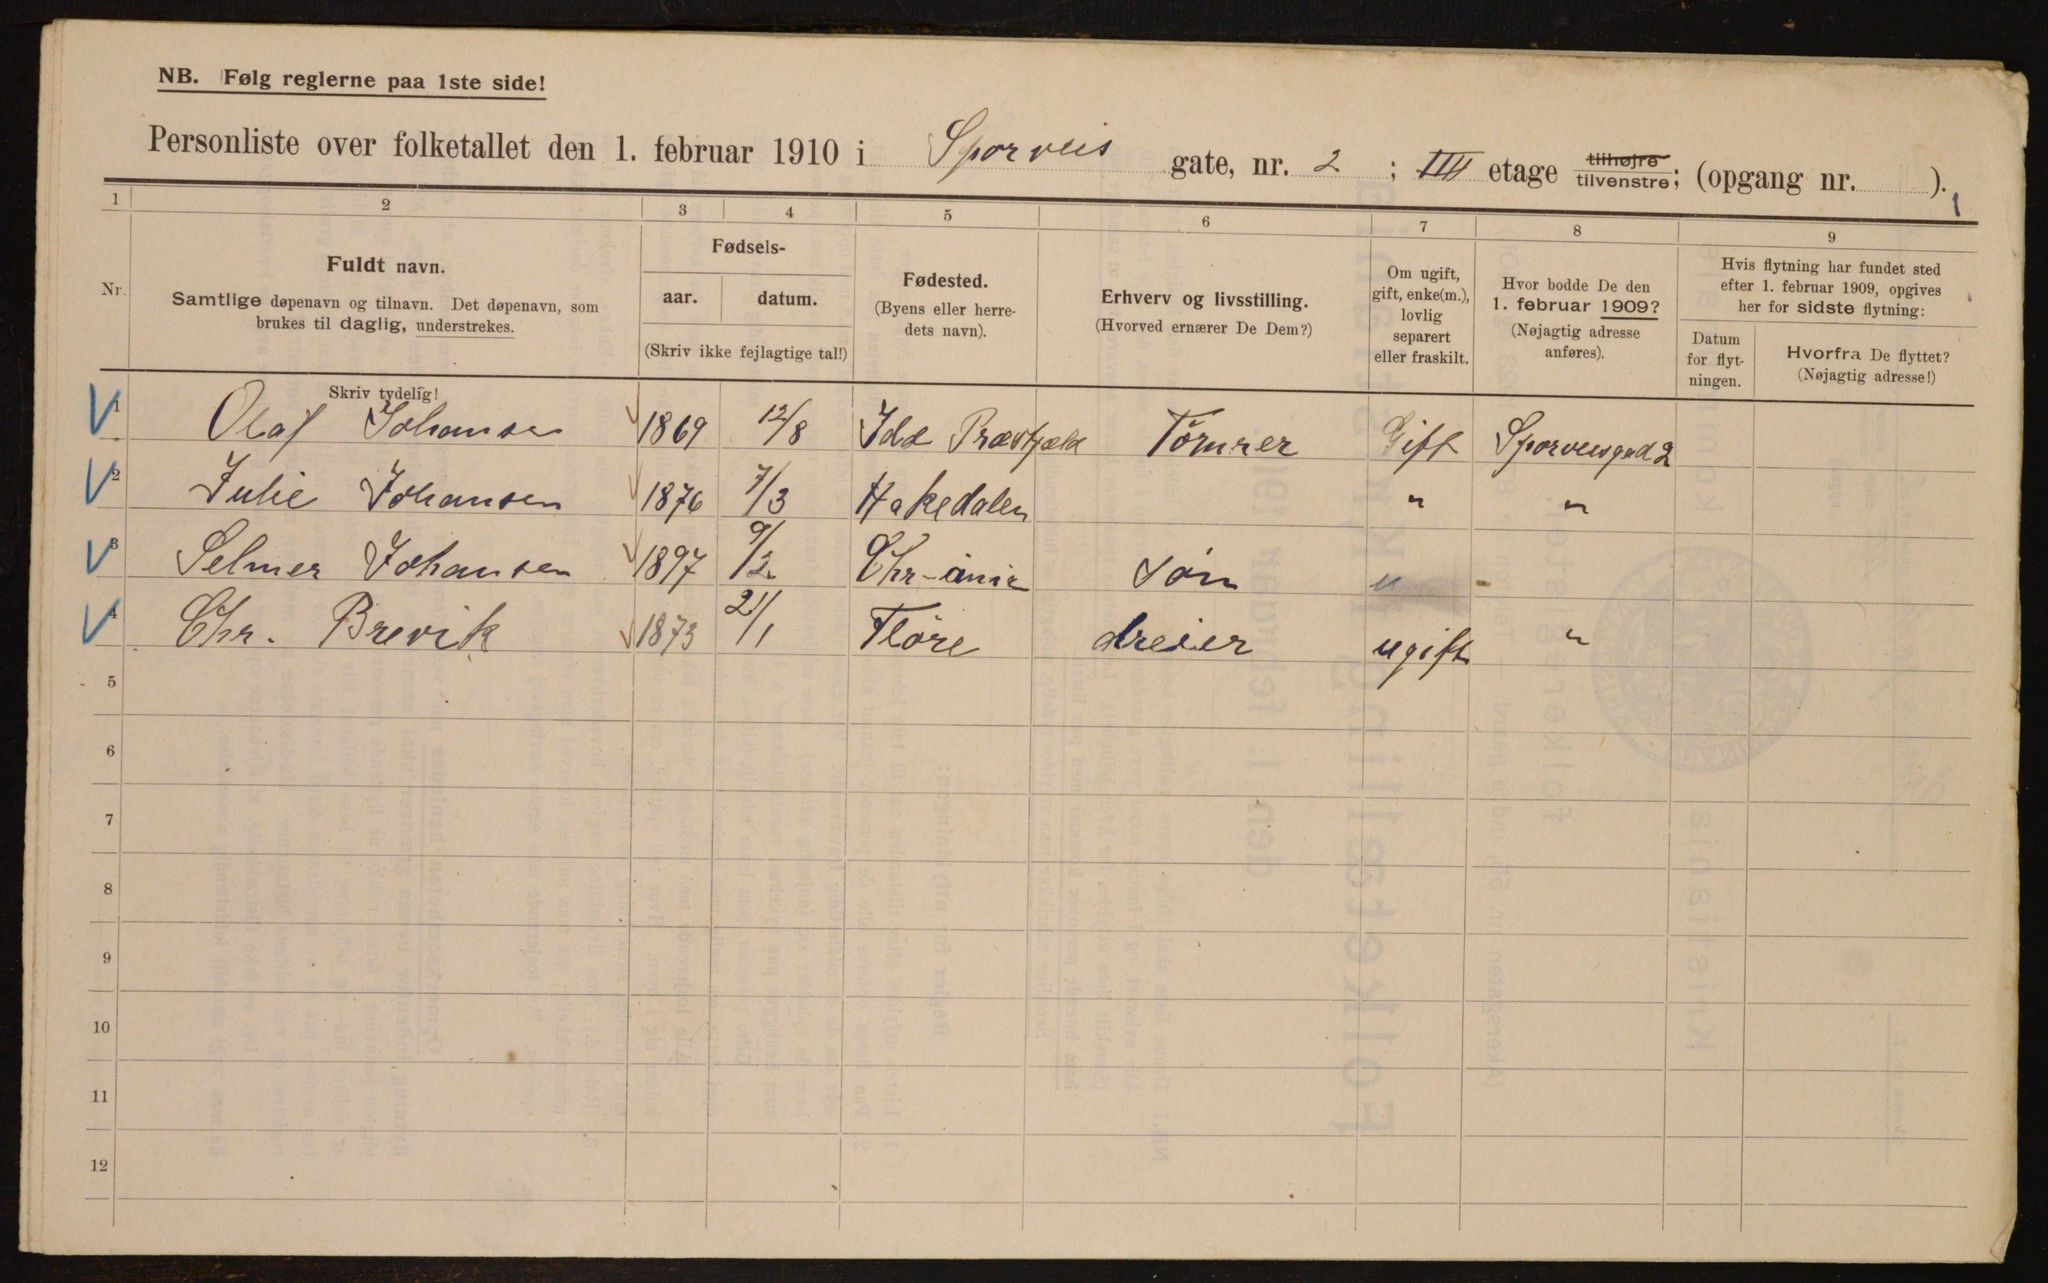 NB. Følg reglerne paa 1ste side!
Personliste over folketallet den 1. februar 1910 i Sporveis gate, nr. 2 ; III etage tilhøjre tilvenstre; (opgang nr. ).
1 2 3 4 5 6 7 8 9
Nr.
Fuldt navn.
Samtlige døpenavn og tilnavn. Det døpenavn, som
brukes til daglig, understrekes.
Skriv tydelig!
Fødsels-
aar. datum.
(Skriv ikke fejlagtige tal!)
Fødested.
(Byens eller herre-
dets navn).
Erhverv og livsstilling.
(Hvorved ernærer De Dem?)
Om ugift,
gift, enke(m.),
lovlig
separert
eller fraskilt.
Hvor bodde De den
1. februar 1909?
(Nøjagtig adresse
anføres).
Hvis flytning har fundet sted
efter 1. februar 1909, opgives
her for sidste flytning:
Datum
for flyt-
ningen.
Hvorfra De flyttet?
(Nøjagtig adresse!)
1 Olaf Johansen 1869 12/8 Idd Præstgjæld Tömrer Gift Sporveisgad 2
2 Julie Johansen 1876 7/3 Hakedalen " "
3 Selmer Johansen 1897 9/2 Chr-ania søn u
4 Chr. Brevik 1873 21/1 Flöre dreier ugift "
5
6
7
8
9
10
11
12